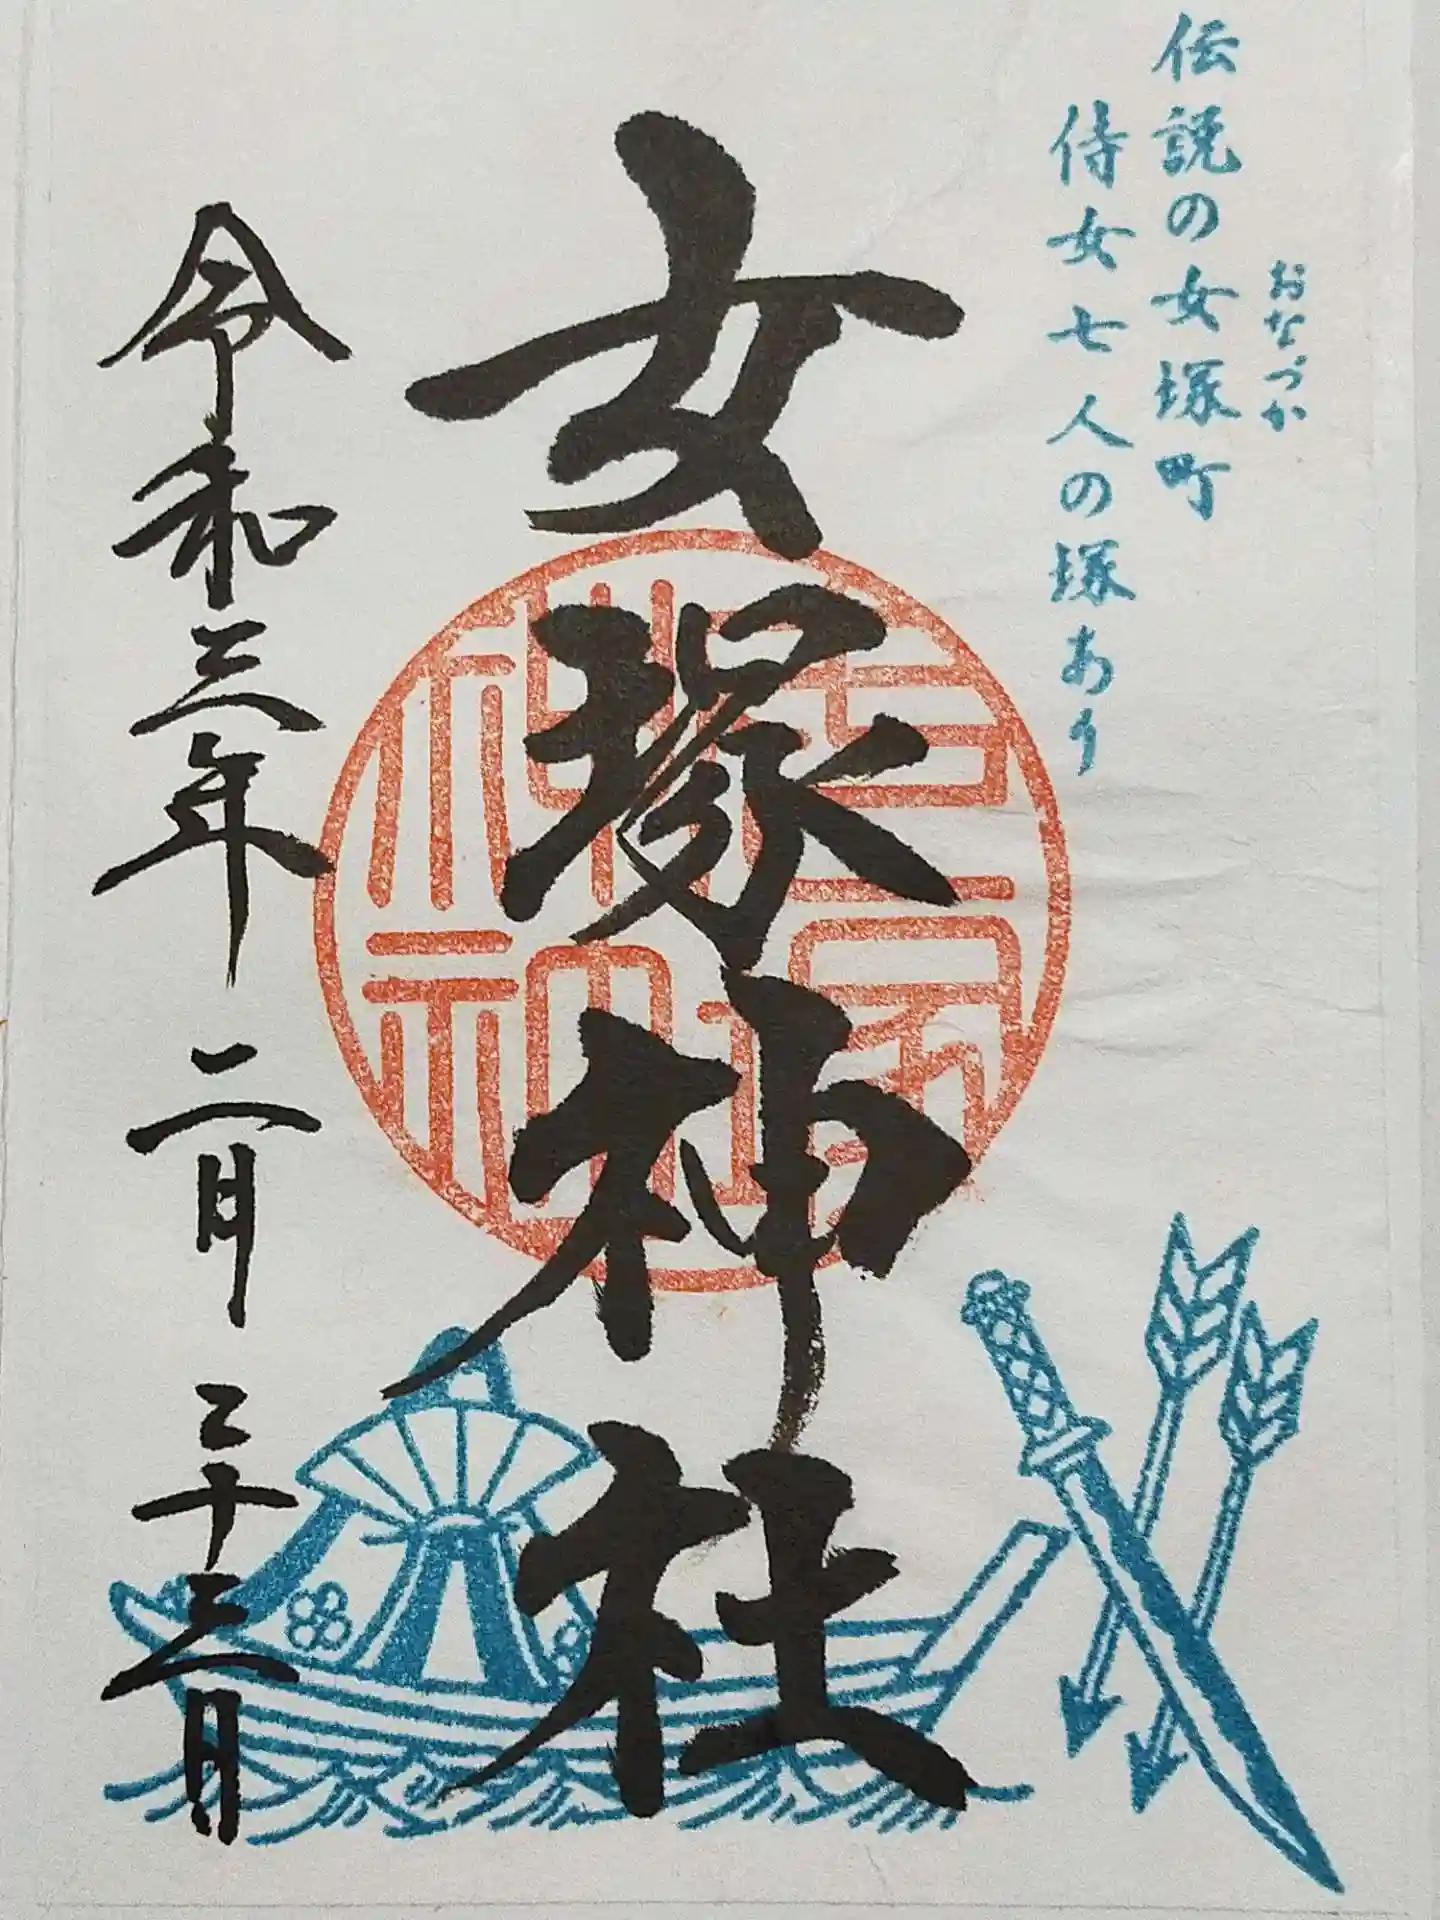 おなづか
伝説の女塚町
侍女七人の塚あり
女塚神社
令和三年二月二十三日